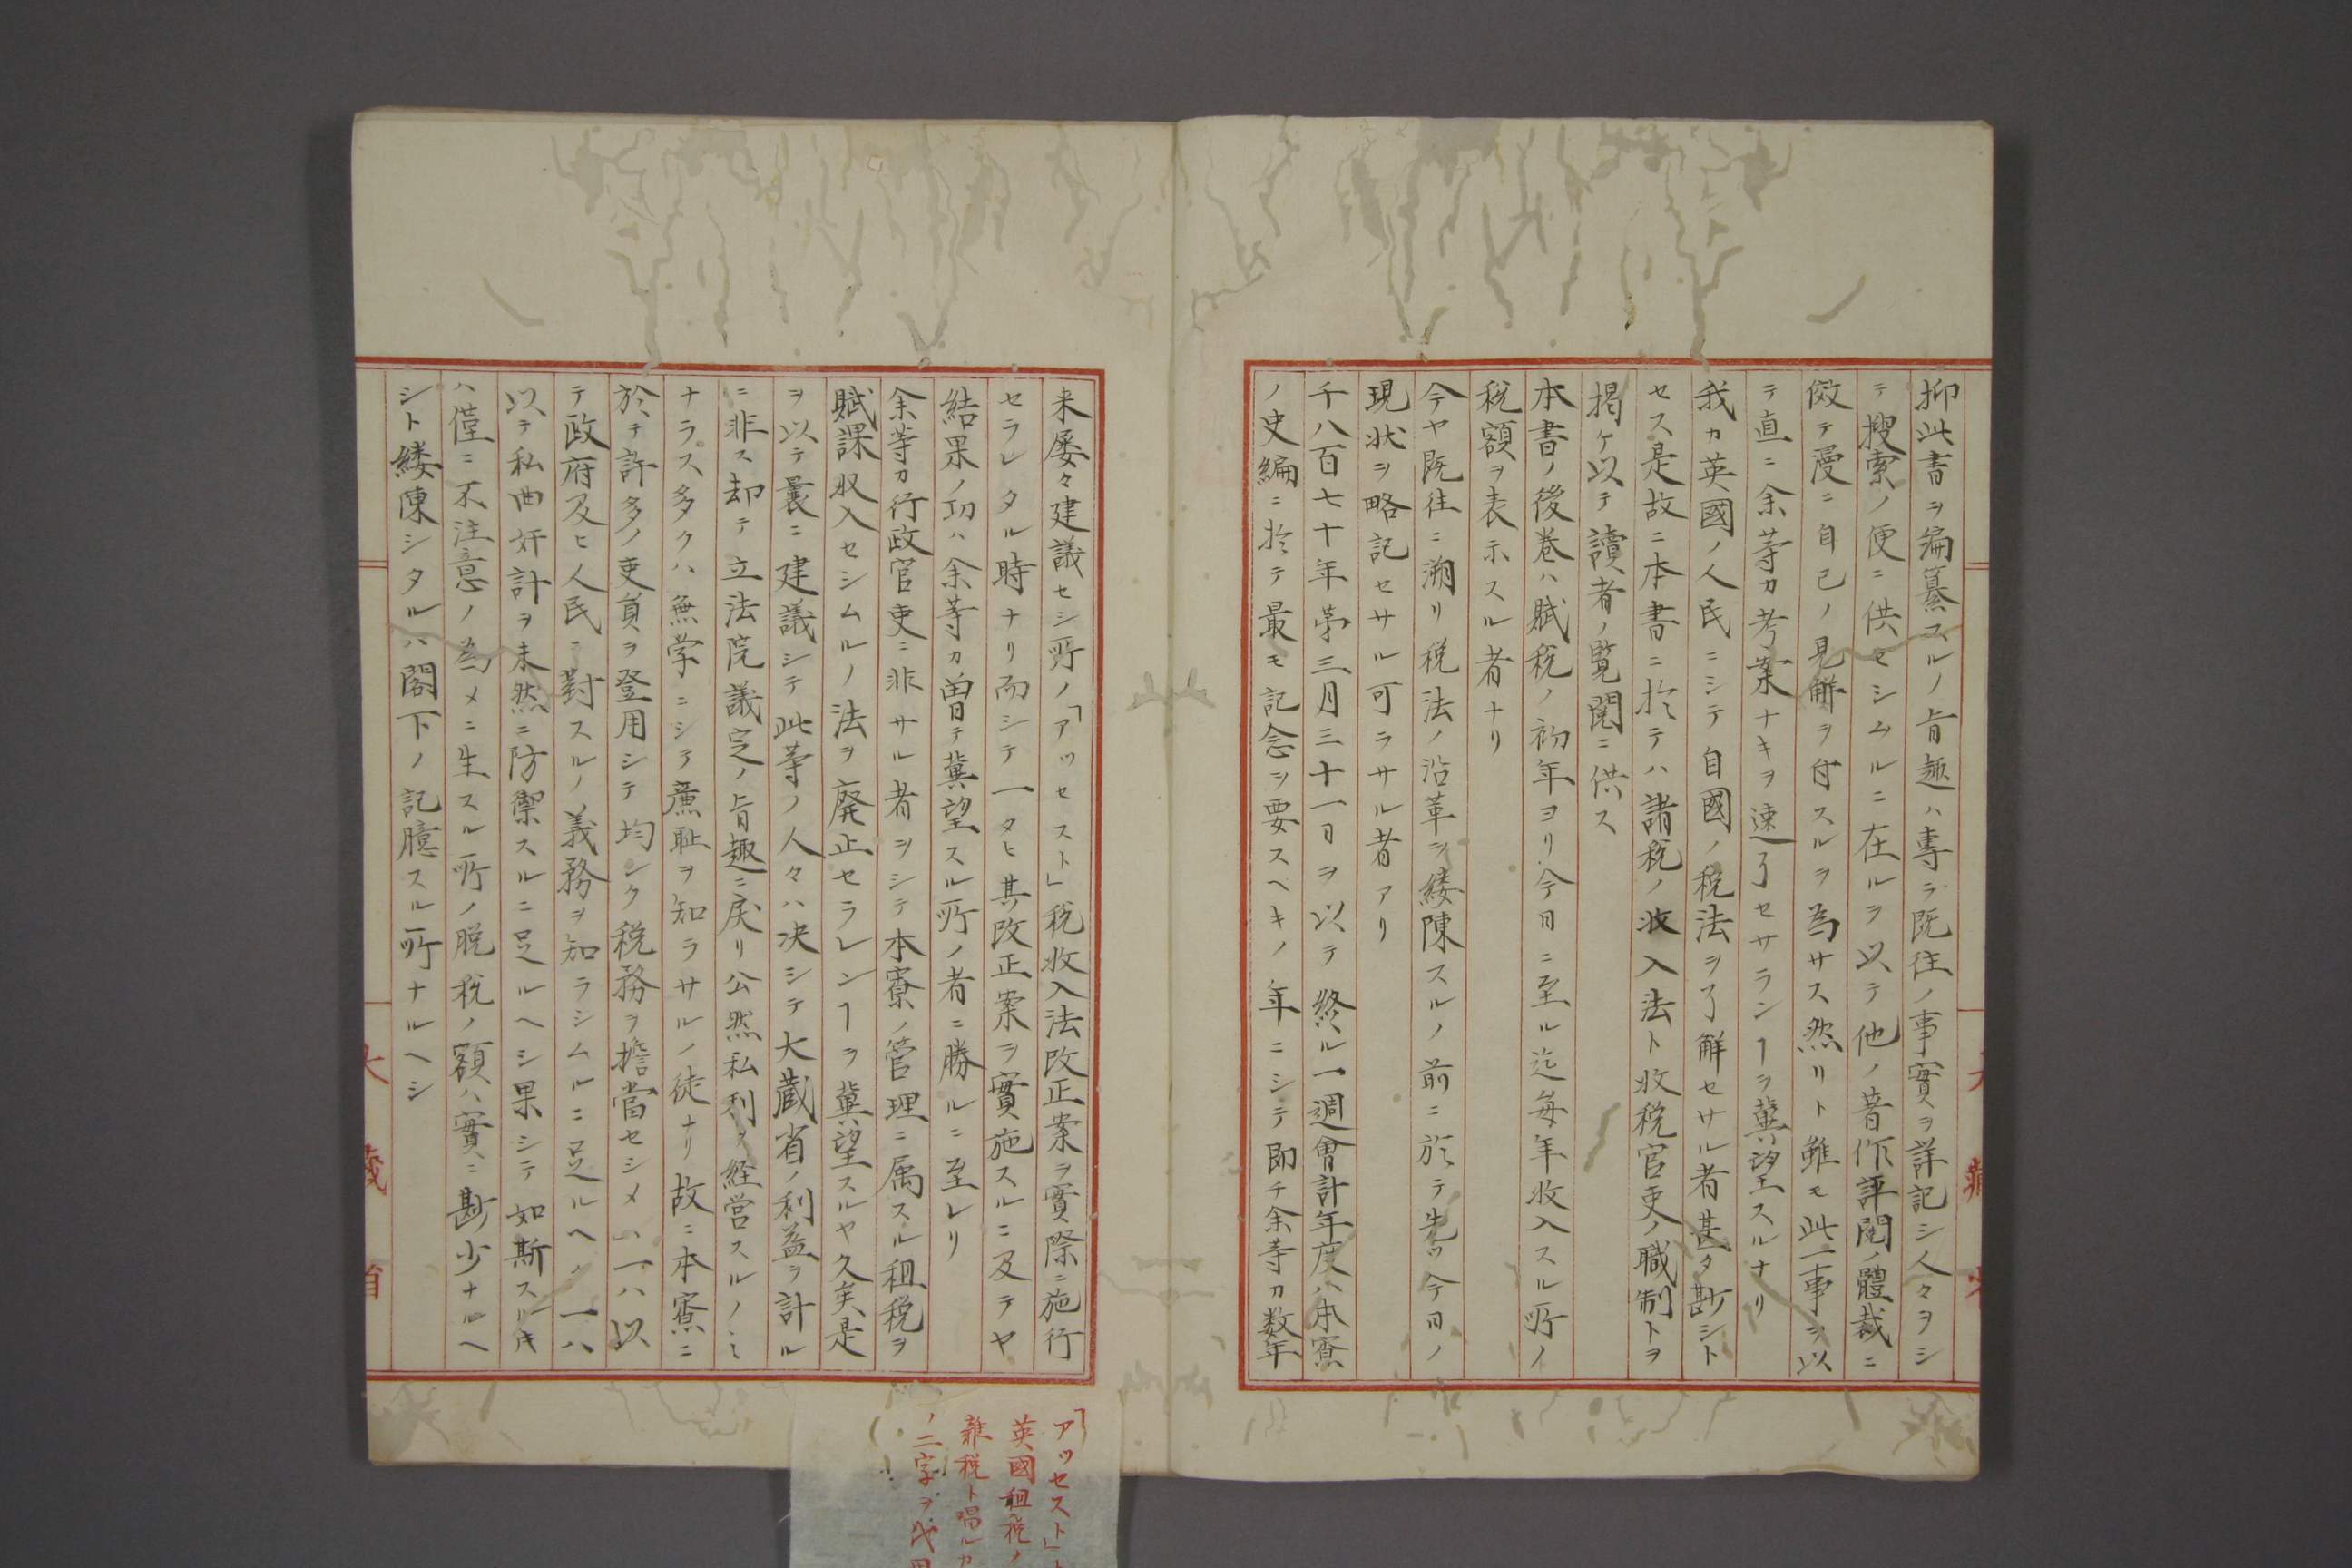 抑此書ヲ編纂スルノ旨趣ハ専ラ既往ノ事實ヲ詳記シ人々ヲシ
テ搜索ノ便ニ供セシムルニ在ルヲ以テ他ノ著作評閲ノ體裁ニ
倣テ漫ニ自己ノ見解ヲ付スルヲ為サス然リト雖モ此一事ヲ以
テ直ニ余等カ考案ナキヲ速了セサランヿヲ冀望スルナリ
我カ英國ノ人民ニシテ自國ノ税法ヲ了解セサル者甚タ尠シト
セス是故ニ本書ニ於テハ諸税ノ收入法ト收税官吏ノ職制トヲ
掲ケ以テ讀者ノ覽閲ニ供ス
本書ノ後巻ハ賦税ノ初年ヨリ今日ニ至ル迄毎年收入スル所ノ
税額ヲ表示スル者ナリ
今ヤ既往ニ溯リ税法ノ沿革ヲ縷陳スルノ前ニ於テ先ツ今日ノ
現状ヲ略記セサル可ラサル者アリ
千八百七十年第三月三十一日ヲ以テ終ル一週會計年度ハ本寮
ノ史編ニ於テ最モ記念ヲ要スヘキノ年ニシテ即チ余等カ数年
来屡々建議セシ所ノ「アッセスト」税收入法改正案ヲ實際ニ施行
セラレタル時ナリ而シテ一タヒ其改正案ヲ實施スルニ及テヤ
結果ノ功ハ余等カ曽テ冀望スル所ノ者ニ勝ルニ至レリ
余等カ行政官吏ニ非サル者ヲシテ本寮ノ管理ニ属スル租税ヲ
賦課收入セシムルノ法ヲ廃止セラレンヿヲ冀望スルヤ久矣是
ヲ以テ曩ニ建議シテ此等ノ人々ハ决シテ大蔵省ノ利益ヲ計ル
ニ非ス却テ立法院議定ノ旨趣ニ戻リ公然私利ヲ経営スルノミ
ナラス多クハ無学ニシテ廉耻ヲ知ラサルノ徒ナリ故ニ本寮ニ
於テ許多ノ吏員ヲ登用シテ均シク税務ヲ擔當セシメハ一ハ以
テ政府及ヒ人民ニ對スルノ義務ヲ知ラシムルニ足ルヘク一ハ
以テ私曲奸計ヲ未然ニ防禦スルニ足ルヘシ果シテ如斯スルキ
ハ僅ニ不注意ノ為メニ生スル所ノ脱税ノ額ハ實ニ尠少ナルヘ
シト縷陳シタルハ閣下ノ記臆スル所ナルヘシ
大藏省
「アッセスト」ト
英國租税ノ
雜税ト唱ルカ
ノ二字ヲ代用